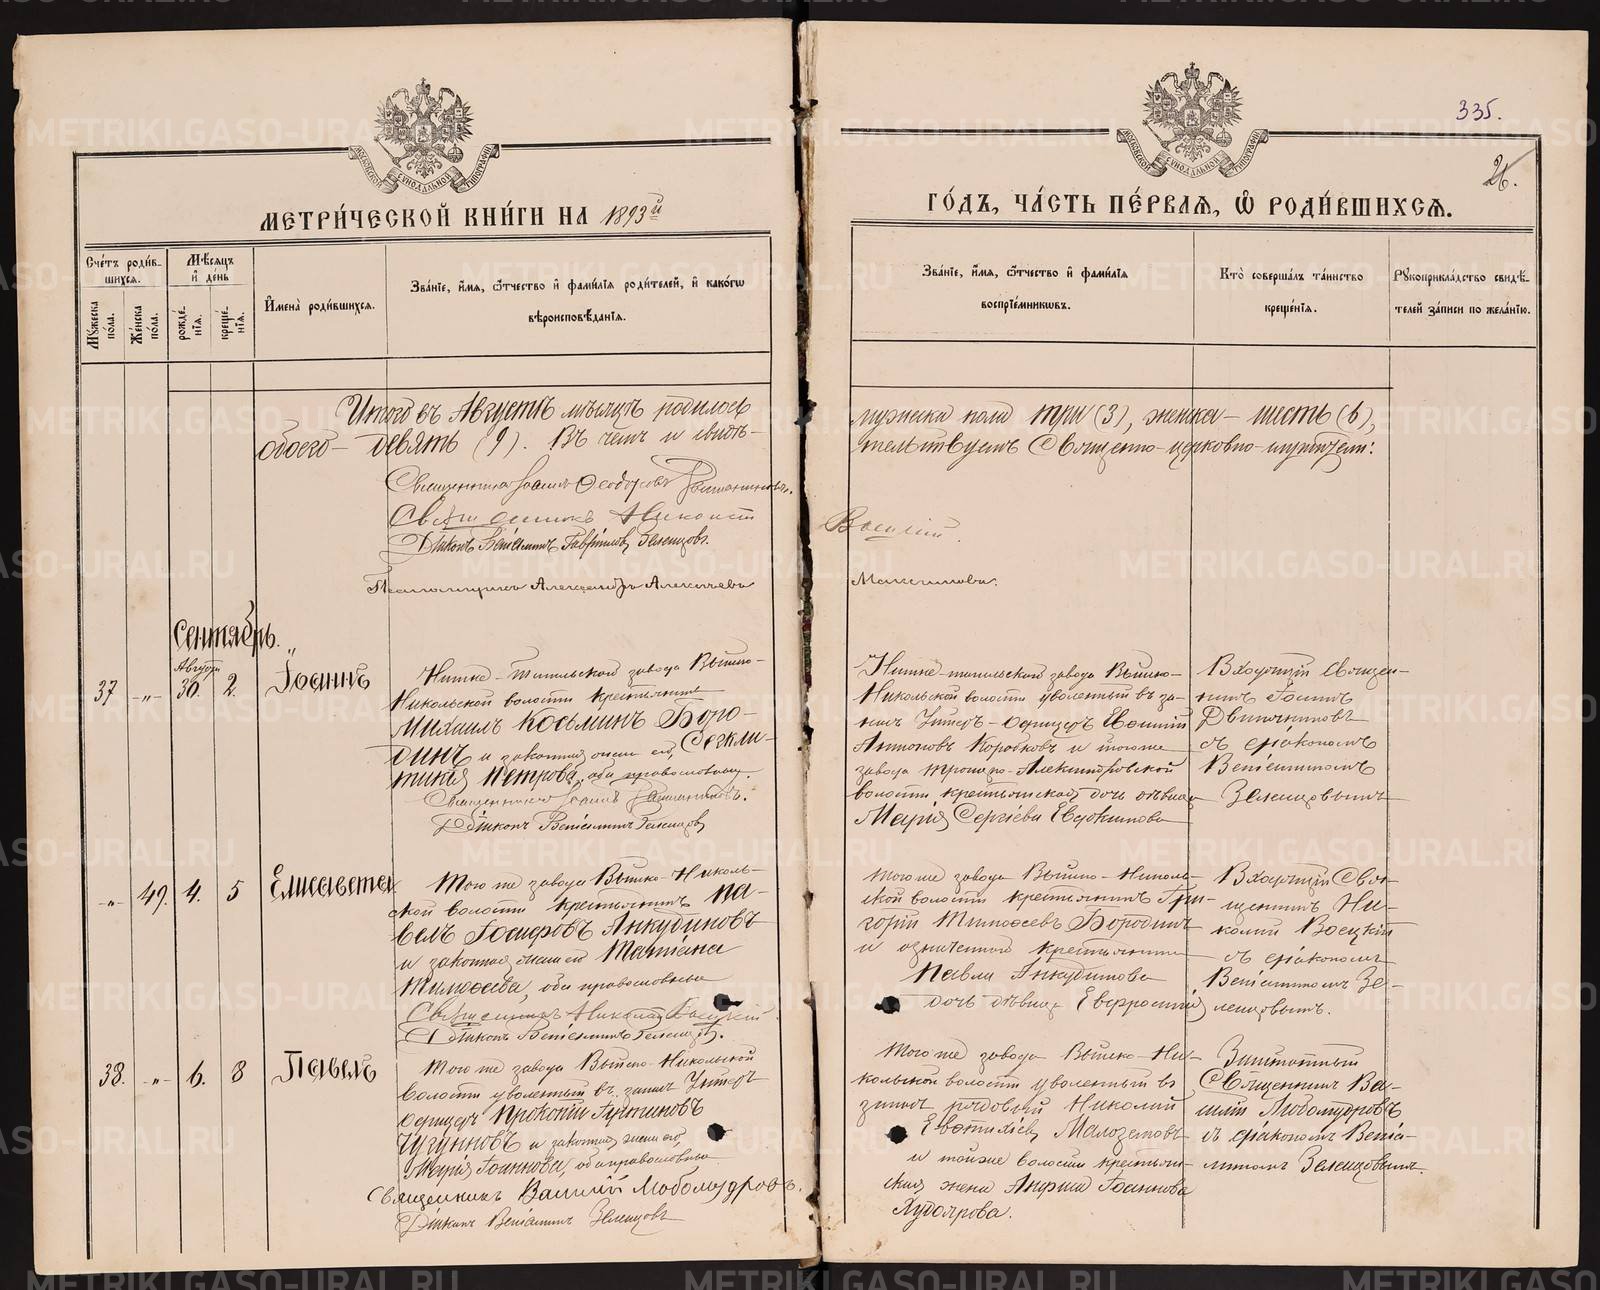 335.
26.
МЕТРИ́ЧЕСКОЙ КНИ́ГИ НА 1893й
ГО́ДЪ, ЧА́СТЬ ПЕ́РВАЯ, Ѽ РОДИ́ВШИХСЯ.
Сче́тъ роди́в-
шихся.
Му́жеска по́ла.
Же́нска по́ла.
Мѣ́сяцъ
и́ де́нь
рожде́-
нїя.
креще́-
нїя.
И҆мена̀ роди́вшихся.
Зва́нїе, и҆́мя, ѻ҆́тчество и҆ фами́лїя роди́телей, и҆ како́гѡ
вѣроисповѣ́данїя.
Зва́нїе, и҆́мя, ѻ҆́тчество и҆ фами́лїя
воспрїе́мниковъ.
Кто̀ соверша́лъ та́инство
креще́нїя.
Рукоприкла́дство свидѣ́-
телей за́писи по жела́нїю.
Итого въ Августѣ мѣсяцѣ родилось
обоего – девять (9). Въ чемъ и свидѣ-
мужеска пола три (3), женска – шесть (6),
тельствуемъ Священно-церковно-служители:
Священникъ Іоаннъ Феодоровъ
Священникъ Николай
Василій
Діаконъ Веніаминъ Гавріиловъ Зеленцовъ.
Псаломщикъ Александръ Алексѣевъ
Максимовъ.
Сентябрь.
37
-„-
Августа
30.
2.
Іоаннъ
Нижне-Тагильскаго завода Выйско-
Никольской волости крестьянинъ
Михаилъ Косьминъ Боро-
динъ и законная жена его
Петрова, оба православные.
Священникъ Іоаннъ
Діаконъ Веніаминъ Зеленцовъ
Нижне-тагильскаго завода Выйско-
Никольской волости уволенный въ за-
пасъ Унтеръ-офицеръ Евфимій
Антоновъ Коробковъ и тогоже
завода Троицко-Александровской
волости крестьянская дочь дѣвица
Марія Сергіева Евдокимова
Входящій Священ-
никъ Іоаннъ
съ діакономъ
Веніаминомъ
Зеленцовымъ
-„-
49.
4.
5
Елисавета
Того же завода Выйско-Николь-
ской волости крестьянинъ Па-
велъ Іосифовъ Анкудиновъ
и законная жена его Татіана
Тимофеева, оба православные
Священникъ Николай
Діаконъ Веніаминъ Зеленцовъ.
Того же завода Выйско-Николь-
ской волости крестьянинъ Гри-
горій Тимофеевъ Бородинъ
и означеннаго крестьянина
Павла Анкудинова
дочь дѣвица Евфросинія
Входящій Свя-
щенникъ Ни-
колай
съ діакономъ
Веніаминомъ Зе-
ленцовымъ.
38.
-„-
6.
8
Павелъ
Того же завода Выйско-Никольской
волости уволенный въ запасъ Унтеръ
офицеръ Прокопій
Чугуновъ и законная жена его
Марія Іоаннова, оба православные
Священникъ Василій Любомудровъ.
Діаконъ Веніаминъ Зеленцовъ
Того же завода Выйско-Ни-
кольской волости уволенный въ
запасъ рядовой Николай
Евстихіевъ Малоземовъ
и тойже волости крестьян-
ская жена Анфиса Іоаннова
Худоярова.
Заштатный
Священникъ Ва-
силій Любомудровъ
съ діакономъ Веніа-
миномъ Зеленцовымъ.